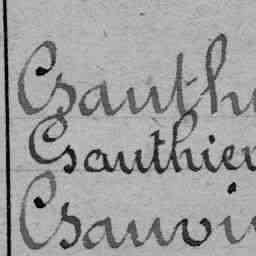 Gauth
Gauthier
Gauvi